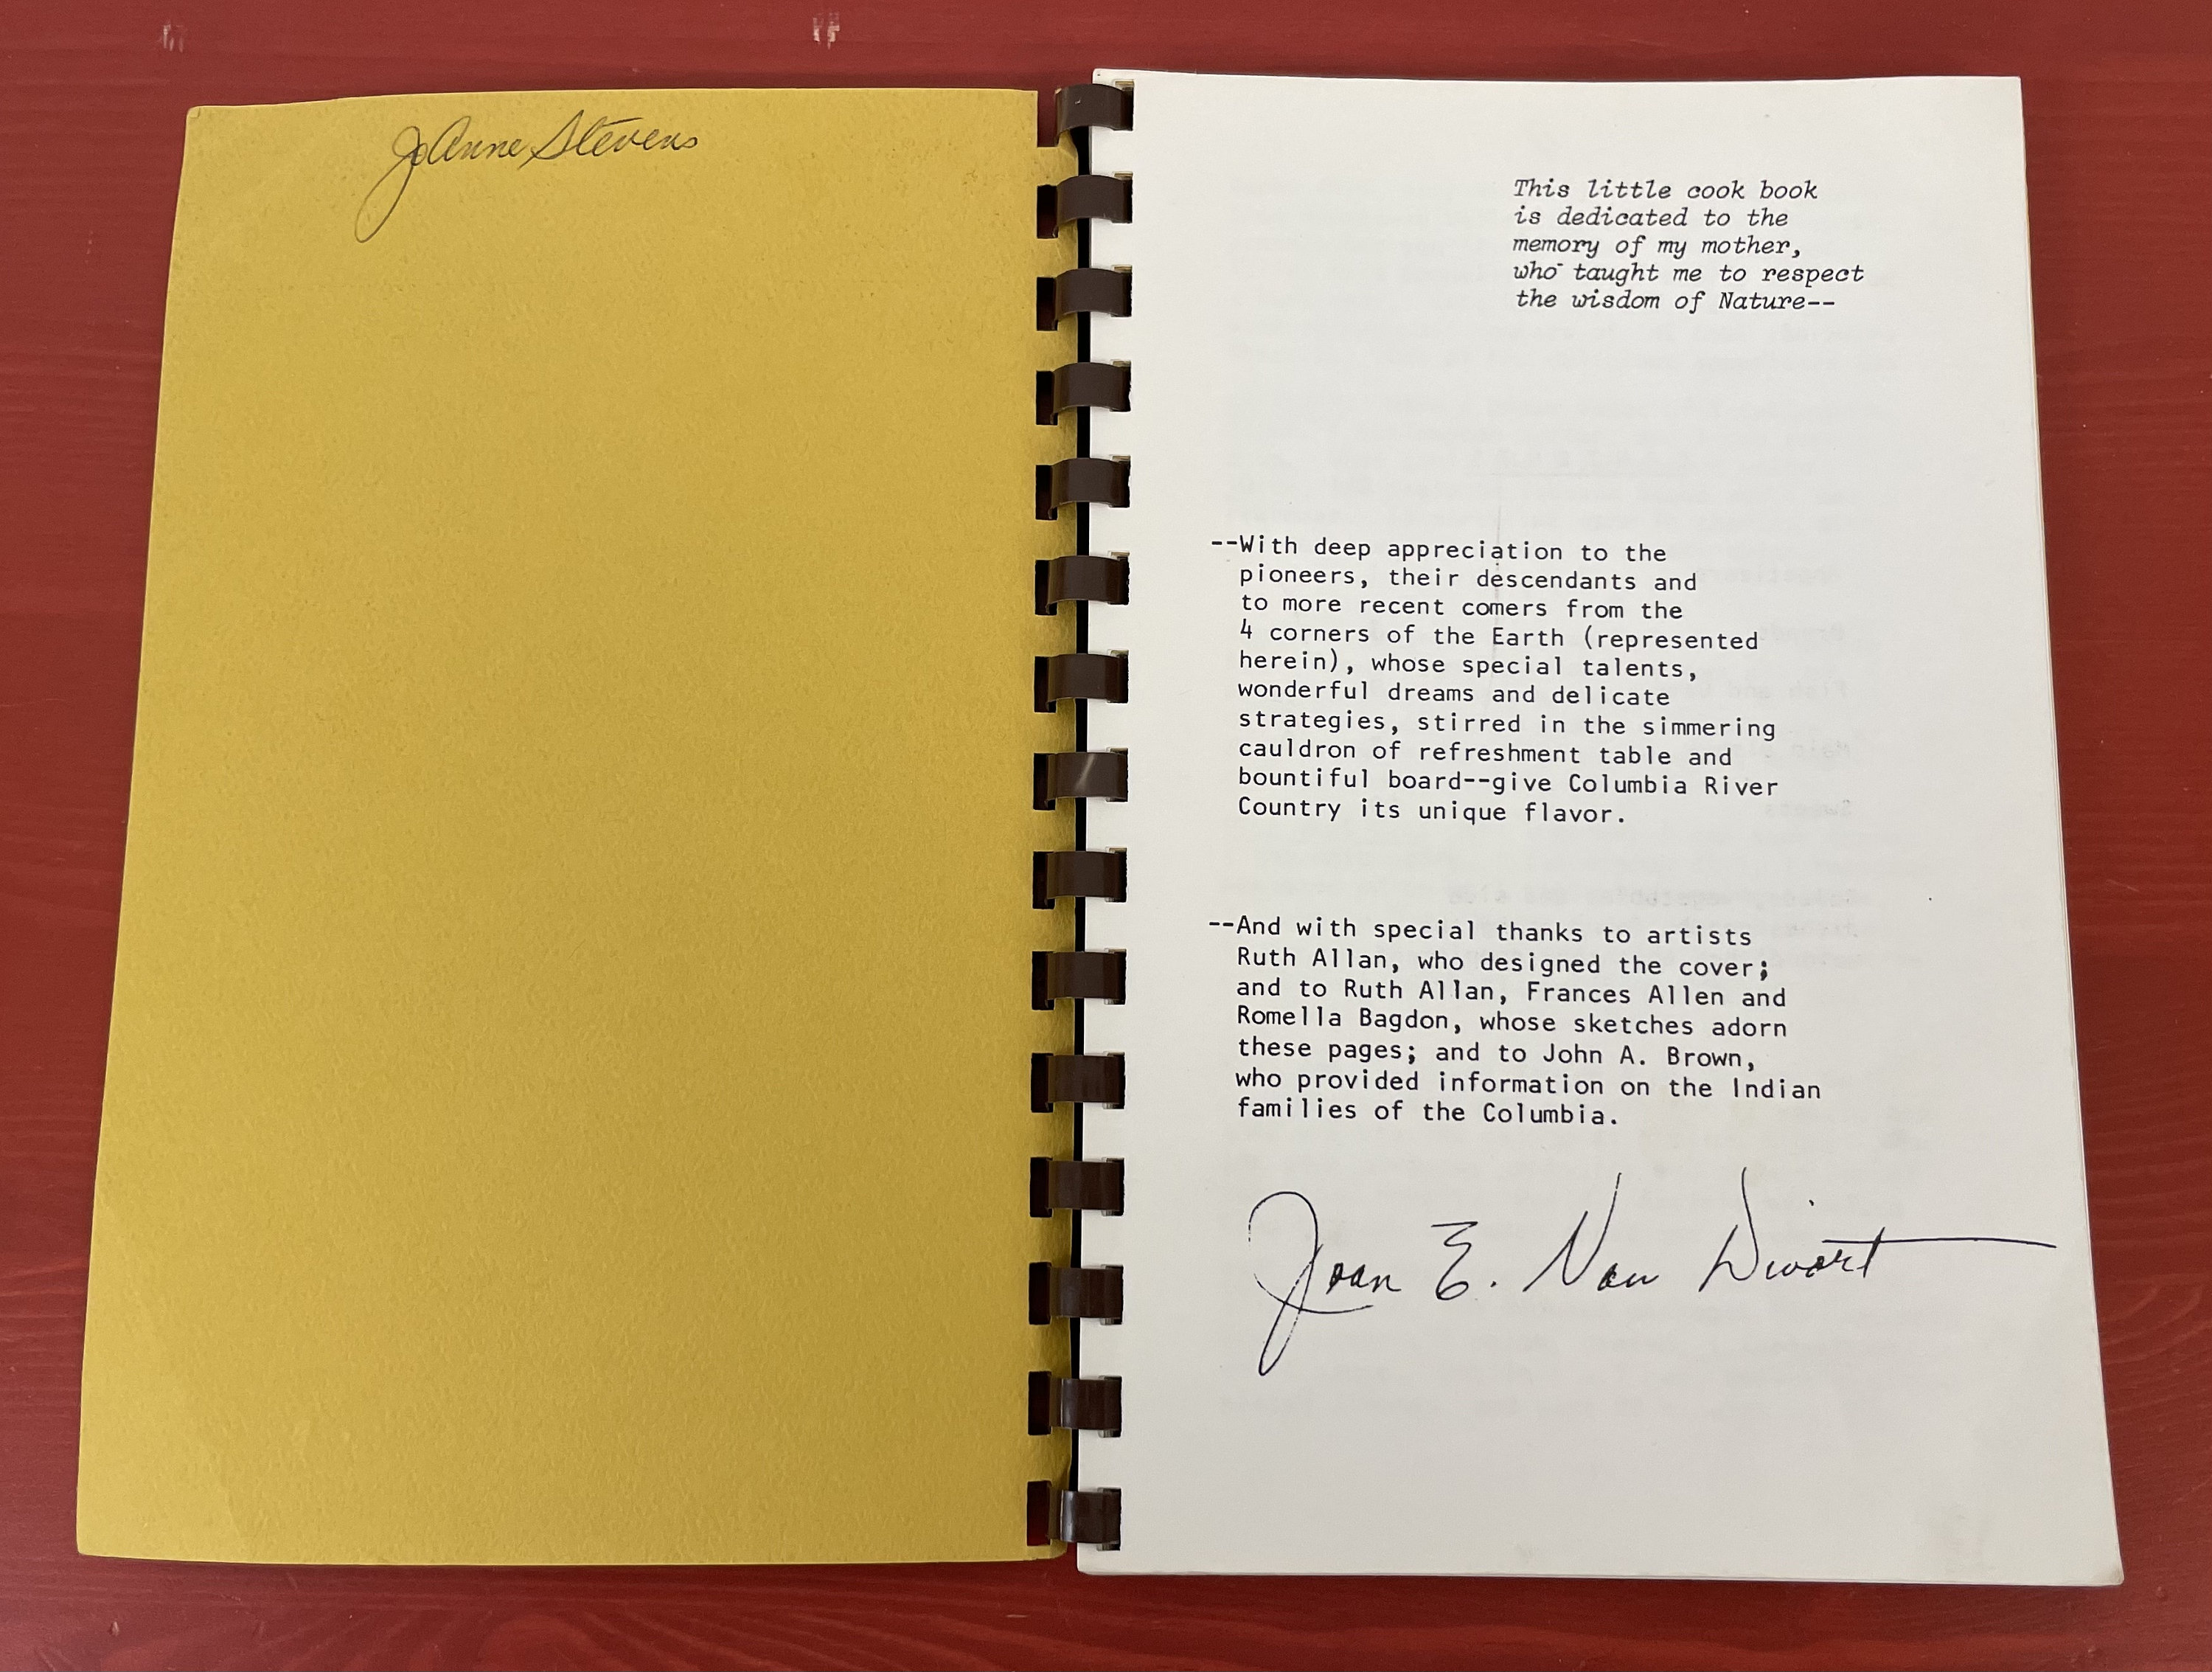 JoAnne Stevens
This little cook book
is dedicated to the
memory of my mother,
who taught me to respect
the wisdom of Nature--
--With deep appreciation to the
pioneers, their descendants and
to more recent comers from the
4 corners of the Earth (represented
herein), whose special talents,
wonderful dreams and delicate
strategies, stirred in the simmering
cauldron of refreshment table and
bountiful board--give Columbia River
Country its unique flavor.
--And with special thanks to artists
Ruth Allan, who designed the cover;
and to Ruth Allan, Frances Allen and
Romella Bagdon, whose sketches adorn
these pages; and to John A. Brown,
who provided information on the Indian
families of the Columbia.
Joan E. Van Divort